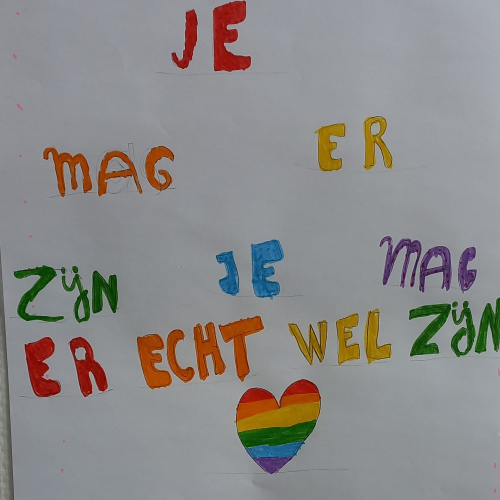 JE
MAG ER
ZIJN JE MAG
ER ECHT WEL ZIJN